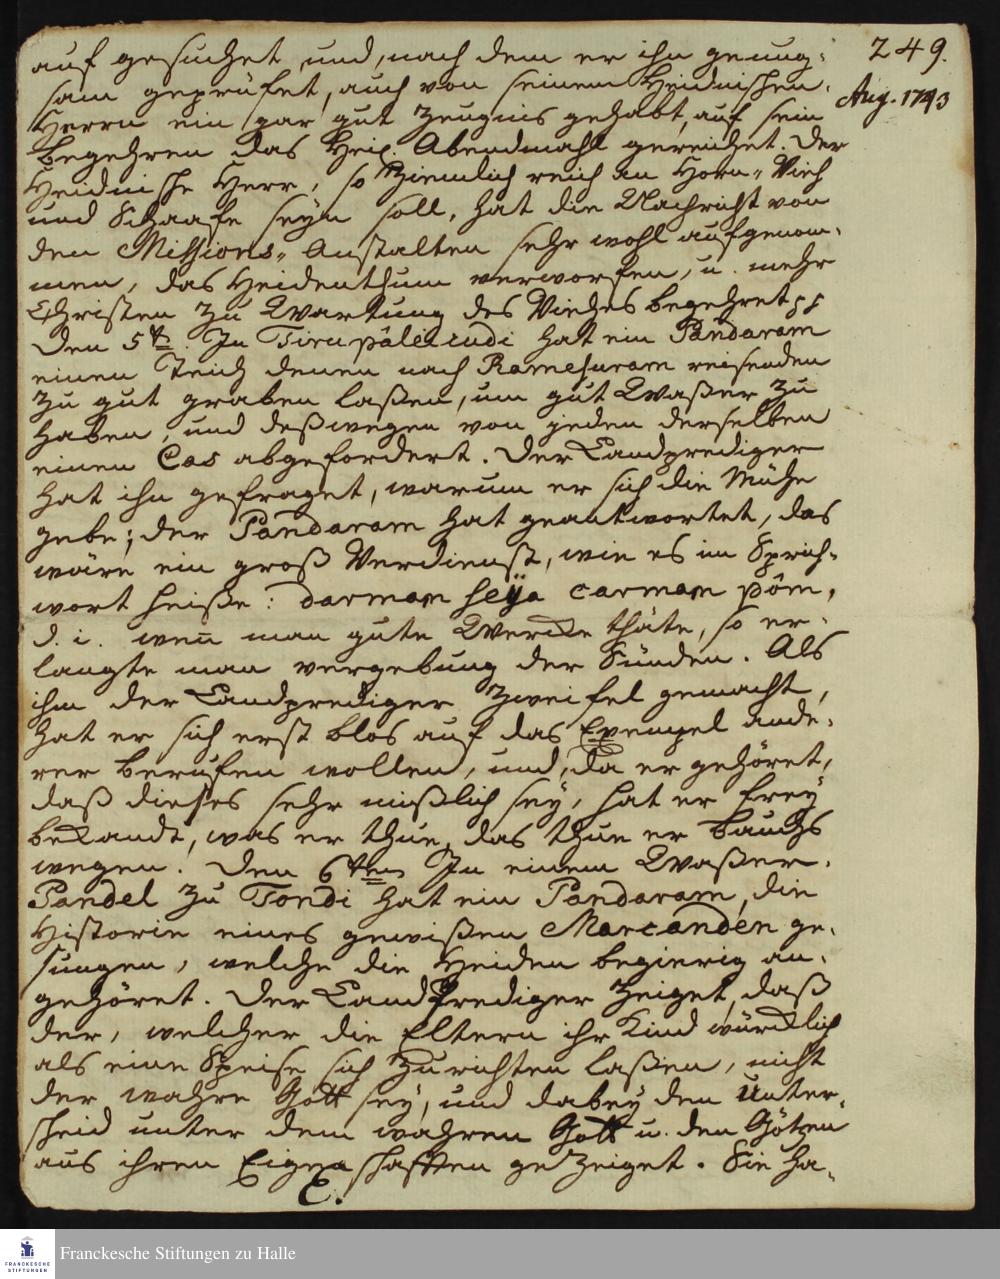 249.
Aug. 1743
auf gesuchet und, nach dem er ihn genug-
sam geprüfet, auch von seinem Heidnischen
Herrn ein gar gut Zeugnis gehabt, auf sein
Begehren das Heil. Abendmahl gereichet. Der
Heidnische Herr, so ziemlich reich an Horn-Vieh
und Schaafe seyn soll, hat die Nachricht von
den Missions-Anstalten sehr wohl aufgenom-
men, das Heidenthum verworfen, u. mehr
Christen zu Wartung des Viehes begehret pp
Den 5t. In Tirupáleicudi hat ein Pandaram
einen Teich denen nach Ramesuram reisenden
zu gut graben laßen, um gut Waßer zu
haben, und deßwegen von jeden derselben
einen Cas abgefordert. Der Landprediger
hat ihn gefraget, warum er sich die Mühe
gebe; der Pandaram hat geantwortet, das
wäre ein groß Verdienst, wie es im Sprich-
wort heiße: darmam seÿa carmam pôm,
d. i. wen̄ man gute Wercke thäte, so er-
langte man vergebung der Sünden. Als
ihm der Landprediger Zweifel gemacht,
hat er sich erst blos auf das Exempel ande-
rer berufen wollen, und, da er gehöret,
daß dieses sehr mißlich sey, hat er frey
bekandt, was er thue, das thue er Bauchs
wegen. Den 6ten In einem Waßer-
Pandel zu Tondi hat ein Pandaram, die
Historie eines gewißen Marcanden ge-
sungen, welche die Heiden begierig an-
gehöret. Der Landprediger zeiget, daß
der, welcher die Eltern ihr Kind würcklich
als eine Speise sich zurichten laßen, nicht
der wahre Gott sey, und dabey den Unter-
scheid unter dem wahren Gott u. den Götzen
aus ihren Eigenschafften gezeiget. Sie ha-
C.
FRANCKESCHE
STIFTUNGEN
Franckesche Stiftungen zu Halle